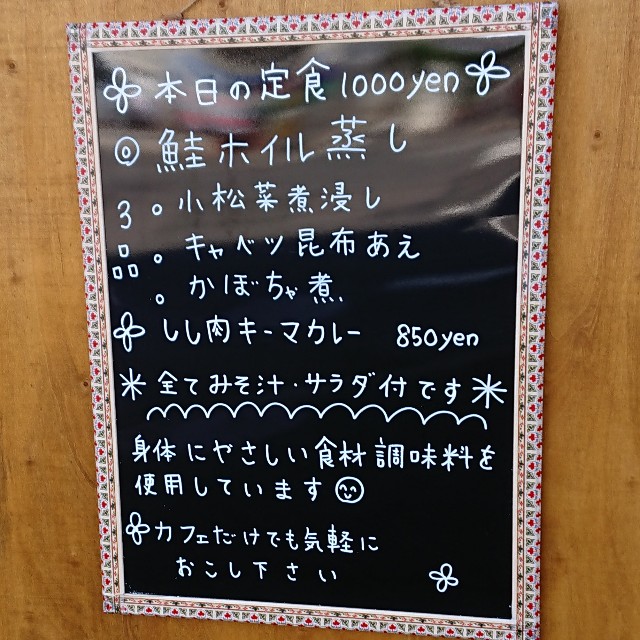 本日の定食 1000yen
◎ 鮭ホイル蒸し
3品 。小松菜煮浸し
。キャベツ昆布あえ
。かぼちゃ煮
しし肉キーマカレー 850yen
＊全てみそ汁・サラダ付です＊
身体にやさしい食材調味料を
使用しています
カフェだけでも気軽に
おこし下さい